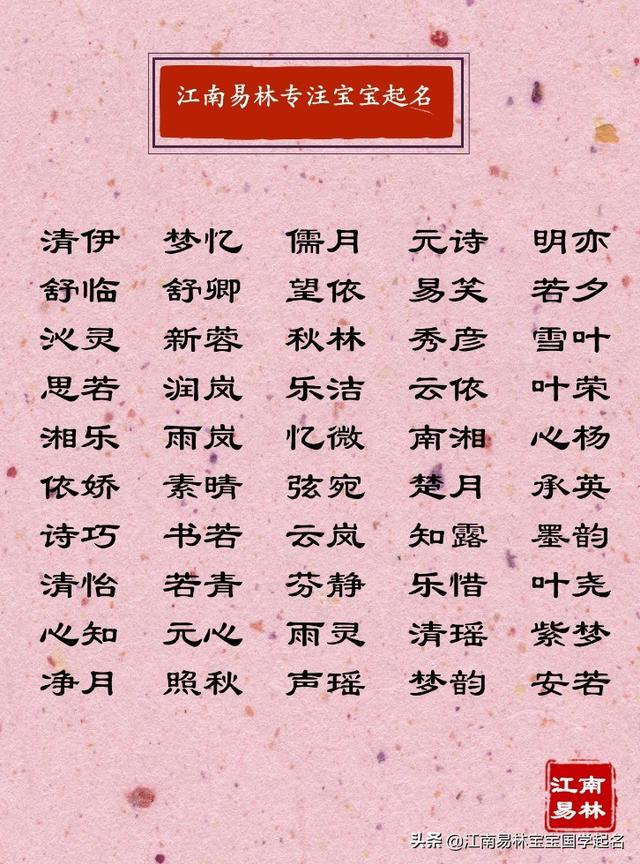 江南易林专注宝宝起名
清伊 梦忆 儒月 元诗 明亦
舒临 舒卿 望依 易笑 若夕
沁灵 新蓉 秋林 秀彦 雪叶
思若 润岚 乐洁 云依 叶荣
湘乐 雨岚 忆微 南湘 心杨
依娇 素晴 弦宛 楚月 承英
诗巧 书若 云岚 知露 墨韵
清怡 若青 芬静 乐惜 叶尧
心知 元心 雨灵 清瑶 紫梦
净月 照秋 声瑶 梦韵 安若
江南
易林
头条 @江南易林宝宝国学起名